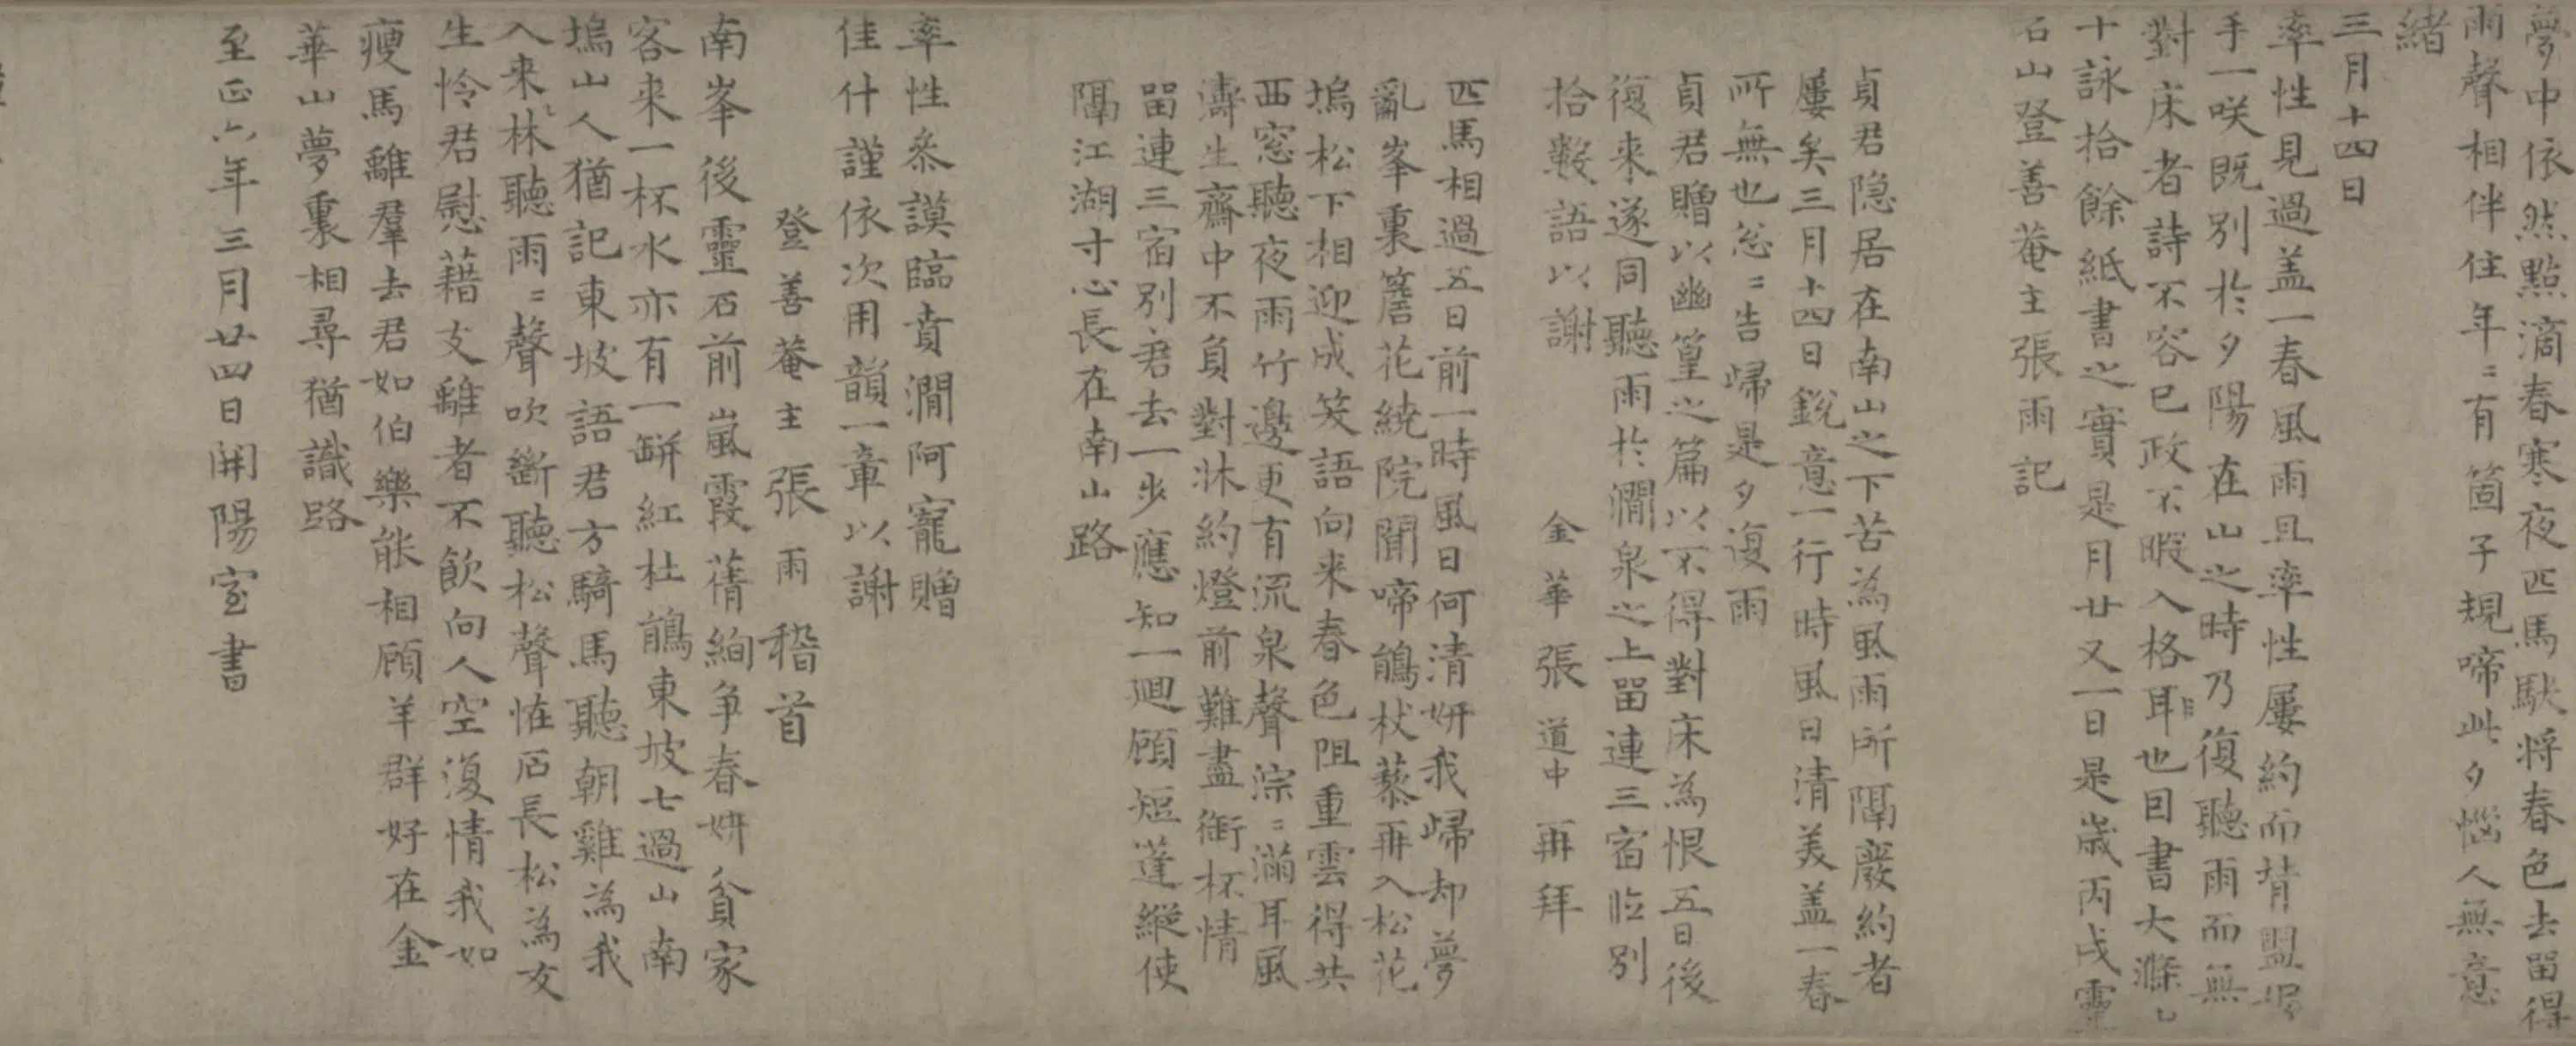 夢中依然點滴春寒夜匹馬馱将春色去留得
雨聲相伴住年〻有箇子規啼此夕惱人無意
緒
三月十四日
率性見過盖一春風雨且率性屢約而背盟場
手一咲既別於夕陽在山之時乃復聽雨而無
對床者詩不容已政不暇入格耳也因書大滌七
十詠拾餘紙書之實是月廿又一日是歲丙戌靈
石山登善菴主張雨記
貞君隐居在南山之下苦為風雨所隔廢約者
屢矣三月十四日銳意一行時風日清美盖一春
所無也怱〻告歸是夕復雨
貞君贈以幽篁之篇以不得對床為恨五日後
復来遂同聽雨於澗泉之上留連三宿临别
拾數語以謝
金華張道中再拜
匹馬相過五日前一時風日何清妍我歸却夢
亂峯裏簷花繞院聞啼鵑杖藜再入松花
塢松下相迎成笑語向来春色阻重雲得共
西窓聽夜雨竹邊更有流泉聲淙〻滿耳風
濤生齋中不負對牀約燈前難盡銜杯情
留連三宿别君去一步應知一廻顾短蓬縱使
隔江湖寸心長在南山路
率性叅謨臨賁澗阿寵贈
佳什謹依次用韻一章以謝
登善菴主張雨稽首
南峯後靈石前嵐霞蒨絢争春妍貧家
客来一杯水亦有一缾紅杜鵑東坡七過山南
塢山人猶記東坡語君方騎馬聽朝雞為我
入来林聽雨〻聲吹斷聽松聲恠石長松為友
生怜君慰藉支離者不飲向人空復情我如
瘦馬離羣去君如伯樂能相顾羊群好在金
華山夢裏相尋猶識路
至正六年三月廿四日開陽室書